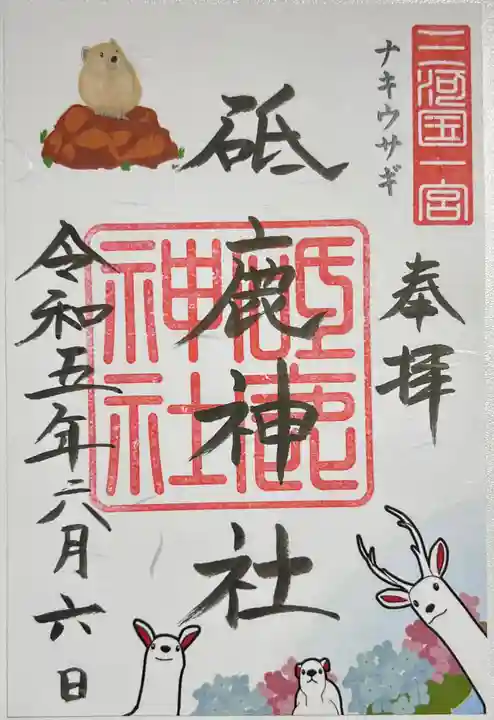 三河国一宮
ナキウサギ
奉拝
砥鹿神社
砥鹿神社
令和五年六月六日